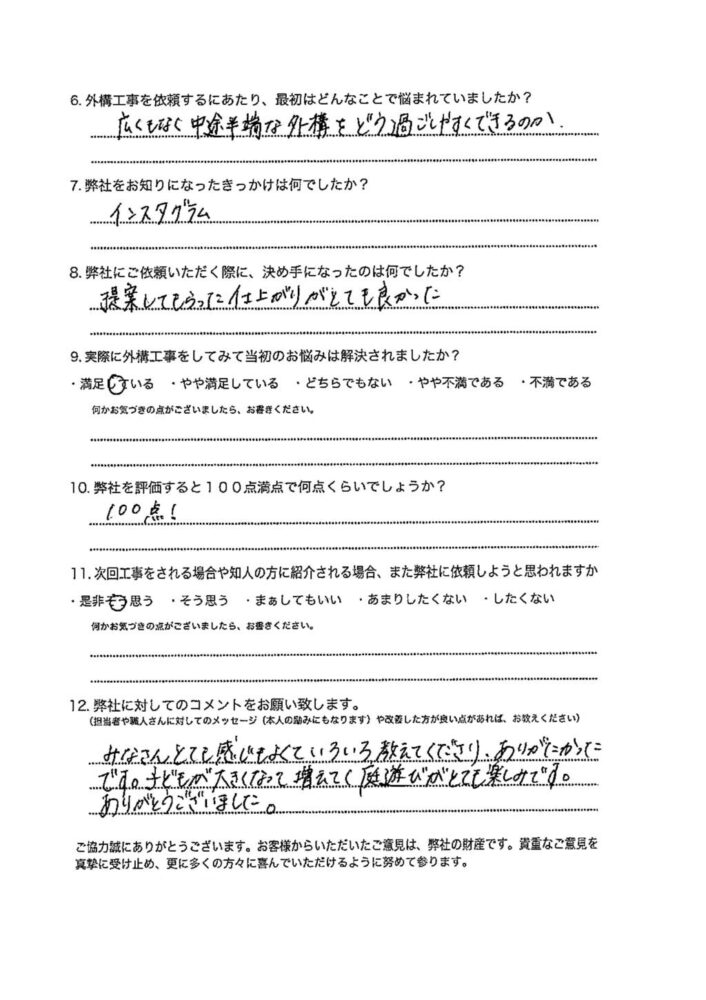 6. 外構工事を依頼するにあたり、最初はどんなことで悩まれていましたか？
広くもなく中途半端な外構をどう過ごしやすくできるのか.
7. 弊社をお知りになったきっかけは何でしたか？
インスタグラム
8. 弊社にご依頼いただく際に、決め手になったのは何でしたか？
提案してもらった仕上がりがとても良かった
9. 実際に外構工事をしてみて当初のお悩みは解決されましたか？
・満足している ・やや満足している ・どちらでもない ・やや不満である ・不満である
何かお気づきの点がございましたら、お書きください。
10. 弊社を評価すると１００点満点で何点くらいでしょうか？
100点！
11. 次回工事をされる場合や知人の方に紹介される場合、また弊社に依頼しようと思われますか
・是非そう思う ・そう思う ・まぁしてもいい ・あまりしたくない ・したくない
何かお気づきの点がございましたら、お書きください。
12. 弊社に対してのコメントをお願い致します。
（担当者や職人さんに対してのメッセージ（本人の励みにもなります）や改善した方が良い点があれば、お教えください）
みなさんとても感じもよくていろいろ教えてくださり、ありがたかった
です。子どもが大きくなって増えてく庭遊びがとても楽しみです。
ありがとうございました。
ご協力誠にありがとうございます。お客様からいただいたご意見は、弊社の財産です。貴重なご意見を
真摯に受け止め、更に多くの方々に喜んでいただけるように努めて参ります。